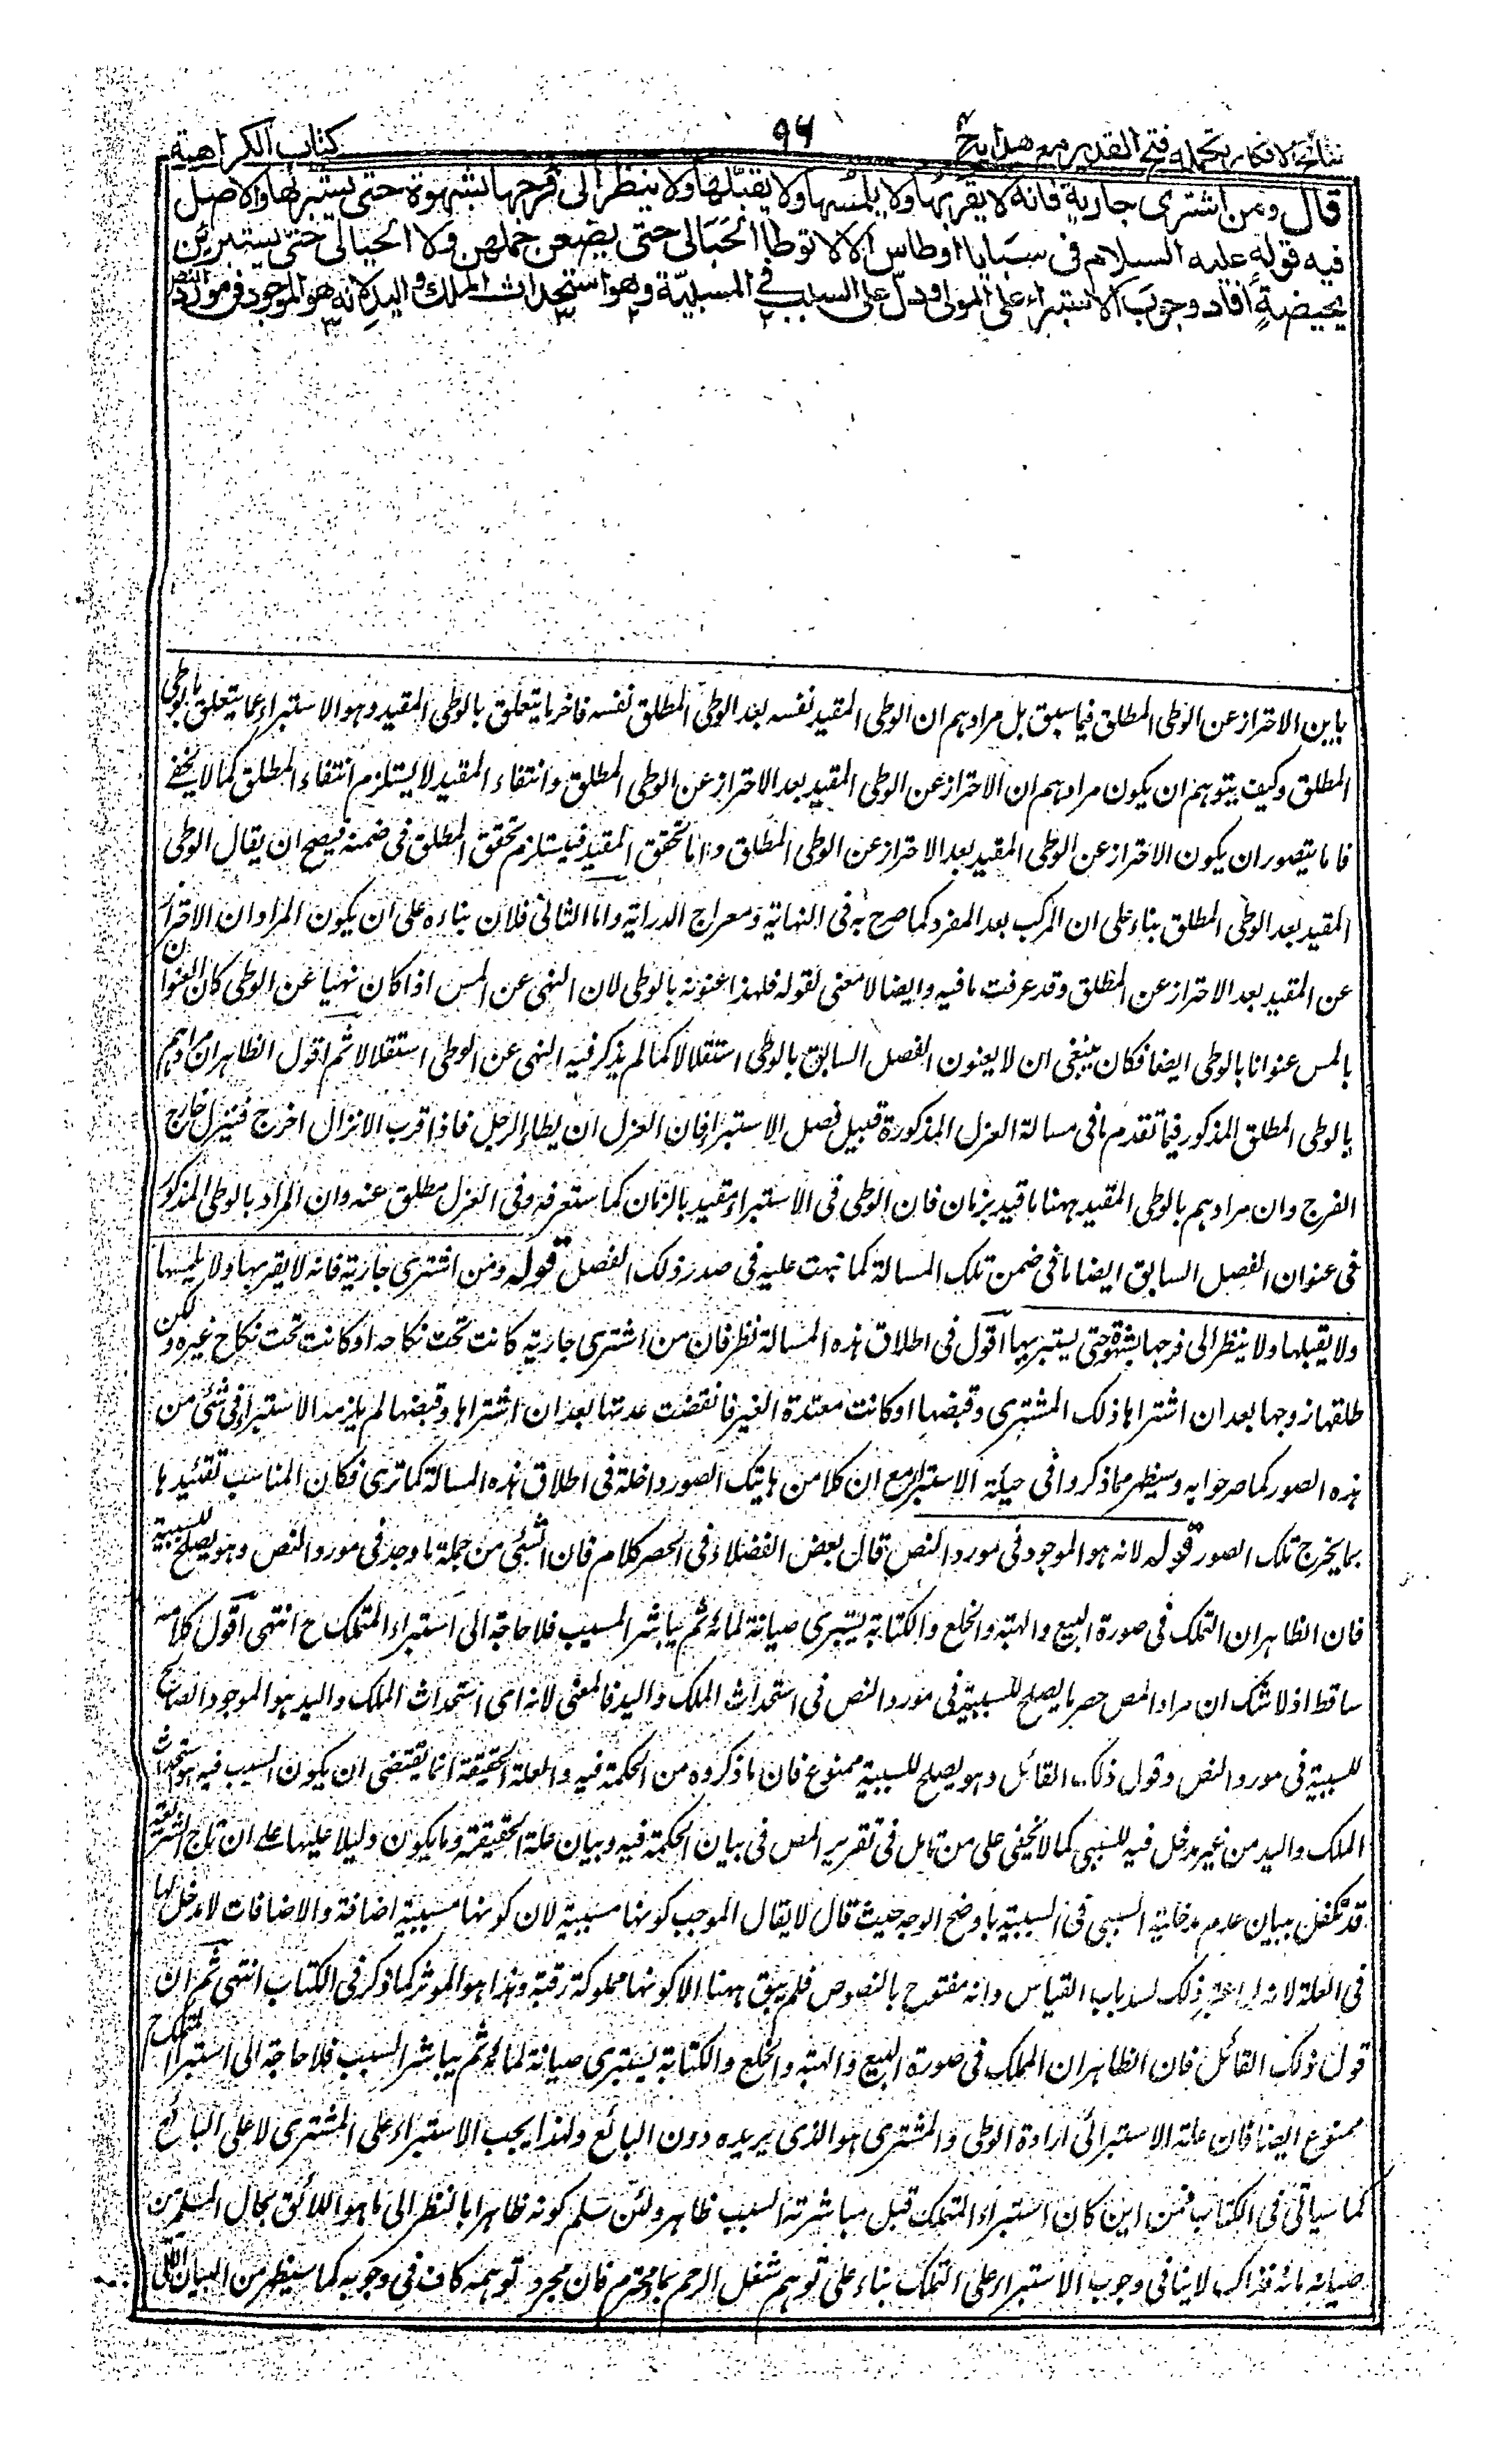 نتائج الافكار تكملة فتح القدير مع هداية ج ٤
٩٦
كتاب الكراهية
قال ومن اشترى جارية فانه لا يقربها ولا يلمسها ولا يقبلها ولا ينظر الى فرجها بشهوة حتى يستبرئها والاصل
فيه قوله عليه السلام فى سبايا اوطاس الا لا توطأ الحَبَالى حتى يضعن حملهن ولا الحيالى حتى يستبرئن
بحيضةٍ افاد وجوبَ الاستبراء على المولى ودل على السبب فى المسبيّة وهو استحداث الملك واليد لانه هو الموجود فى مورد النص
باين الاحتراز عن الوطى المطلق فيما سبق بل مرادهم ان الوطى المقيد نفسه بعد الوطى المطلق نفسه فاخر ما يتعلق بالوطى المقيد وهو الاستبراء عما يتعلق بالوطى
المطلق وكيف يتوهم ان يكون مرادهم ان الاحتراز عن الوطى المقيد بعد الاحتراز عن الوطى المطلق وانتفاء المقيد لا يستلزم انتفاء المطلق كما لا يخفى
فا ما يتصور ان يكون الاحتراز عن الوطى المقيد بعد الاحتراز عن الوطى المطلق واما تحقق المقيد فيستلزم تحقق المطلق فى ضمنه فيصح ان يقال الوطى
المقيد بعد الوطى المطلق بناء على ان المركب بعد المفرد كما صرح به فى النهاية ومعراج الدراية واما الثانى فلان بناءه على ان يكون المراد ان الاحتراز
عن المقيد بعد الاحتراز عن المطلق وقد عرفت ما فيه وايضا لا معنى لقوله فلهذا عنونه بالوطى لان النهى عن المس اذا كان نهيا عن الوطى كان العنوان
بالمس عنوانا بالوطى ايضا فكان ينبغى ان لا يعنون الفصل السابق بالوطى استقلالا كما لم يذكر فيه النهى عن الوطى استقلالا ثم اقول الظاهر ان مرادهم
بالوطى المطلق المذكور فيما تقدم ما فى مسالة العزل المذكورة قبيل فصل الاستبراء فان العزل ان يطاء الرجل فاذا قرب الانزال اخرج فينزل خارج
الفرج وان مرادهم بالوطى المقيد ههنا ما قيد بزمان فان الوطى فى الاستبراء مقيد بالزمان كما ستعرفه وفى العزل مطلق عنه وان المراد بالوطى المذكور
فى عنوان الفصل السابق ايضا ما فى ضمن تلك المسالة كما نبهت عليه فى صدر ذلك الفصل قوله ومن اشترى جارية فانه لا يقربها ولا يلمسها
ولا يقبلها ولا ينظر الى فرجها بشهوة حتى يستبريها اقول فى اطلاق هذه المسالة نظر فان من اشترى جارية كانت تحت نكاحه او كانت تحت نكاح غيره ولكن
طلقها زوجها بعد ان اشتراها ذلك المشترى وقبضها او كانت معتدة الغير فانقضت عدتها بعد ان اشتراها وقبضها لم يلزمه الاستبراء فى شئ من
هذه الصور كما صرحوا به وسيظهر مما ذكروا فى حيلة الاستبراء مع ان كلا من هاتيك الصور داخلة فى اطلاق هذه المسالة كما ترى فكان المناسب تقييدها
بما يخرج تلك الصور قوله لانه هو الموجود فى مورد النص قال بعض الفضلاء فى الحصر كلام فان السبى من جملة ما وجد فى مورد النص وهو يصلح للسببية
فان الظاهر ان المملك فى صورة البيع والهبة والخلع والكتابة يستبرى صيانة لمائه ثم يباشر السبب فلا حاجة الى استبراء المتملك ح انتهى اقول كلامه
ساقط اذ لا شك ان مراد المص حصر ما يصلح للسببية فى مورد النص فى استحداث الملك واليد فالمعنى لانه اى استحداث الملك واليد هو الموجود الصالح
للسببية فى مورد النص وقول ذلك القائل وهو يصلح للسببية ممنوع فان ما ذكروه من الحكمة فيه والعلة الحقيقية انما يقتضى ان يكون السبب فيه هو استحداث
الملك واليد من غير مدخل فيه للسبى كما لا يخفى على من تامل فى تقرير المص فى بيان الحكمة فيه وبيان علة الحقيقية وما يكون دليلا عليها على ان تاج الشريعة
قد تكفل ببيان عدم مدخلية السبى فى السببية باوضح الوجه حيث قال لا يقال الموجب كونها مسبية لان كونها مسبية اضافة والاضافات لا مدخل لها
فى العلة لانه لو اعتبر ذلك لسد باب القياس وانه مفتوح بالنصوص فلم يبق ههنا الا كونها مملوكة رقبة وهذا هو الموثر كما ذكر فى الكتاب انتهى ثم ان
قول ذلك القائل فان الظاهر ان المملك فى صورة البيع والهبة والخلع والكتابة يستبرى صيانة لمائه ثم يباشر السبب فلا حاجة الى استبراء المتملك ح
ممنوع ايضا فان علة الاستبراء ارادة الوطى والمشترى هو الذى يريده دون البائع ولذا يجب الاستبراء على المشترى لا على البائع
كما سياتى فى الكتاب فمن اين كان استبراء المتملك قبل مباشرته السبب ظاهر ولئن سلم كونه ظاهرا بالنظر الى ما هو اللائق بحال المسلم من
صيانة مائه فذاك لا ينافى وجوب الاستبراء على المتملك بناء على توهم شغل الرحم بماء محترم فان مجرد توهمه كاف فى وجوبه كما سيظهر من البيان الآتى